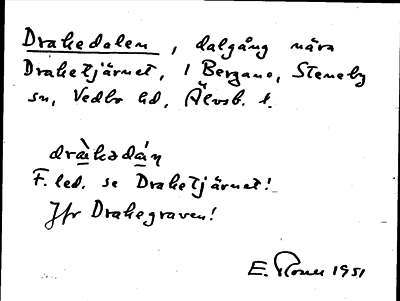 Drakedalen, dalgång nära
Draketjärnet, 1 Bergane, Steneby
sn, Vedbo hd, Älvsb. l.
dràkədáɳ
F. led. se Draketjärnet!
Jfr Drakegraven!
E. 1951